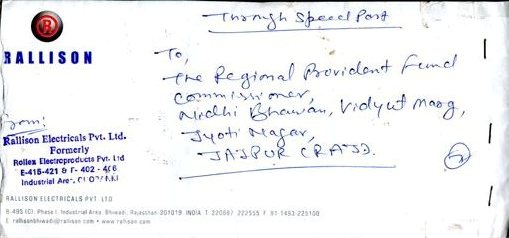 Through Speed Post
R
RALLISON
To,
The Regional Provident Fund
Commissioner,
Nidhi Bhawan, Vidyut Marg,
Jyoti Nagar,
JAIPUR (RAJ).
From:
Rallison Electricals Pvt. Ltd.
Formerly
Rollex Electroproducts Pvt. Ltd
E-415-421 & F- 402 - 406
Industrial Area,
RALLISON ELECTRICALS PVT LTD
Phase I Industrial Area, Bhiwadi, Rajasthan 301019 INDIA T 220687 222555 F 91-1493-225100
E rallisonbhiwadi@rallison.com • www.rallison.com